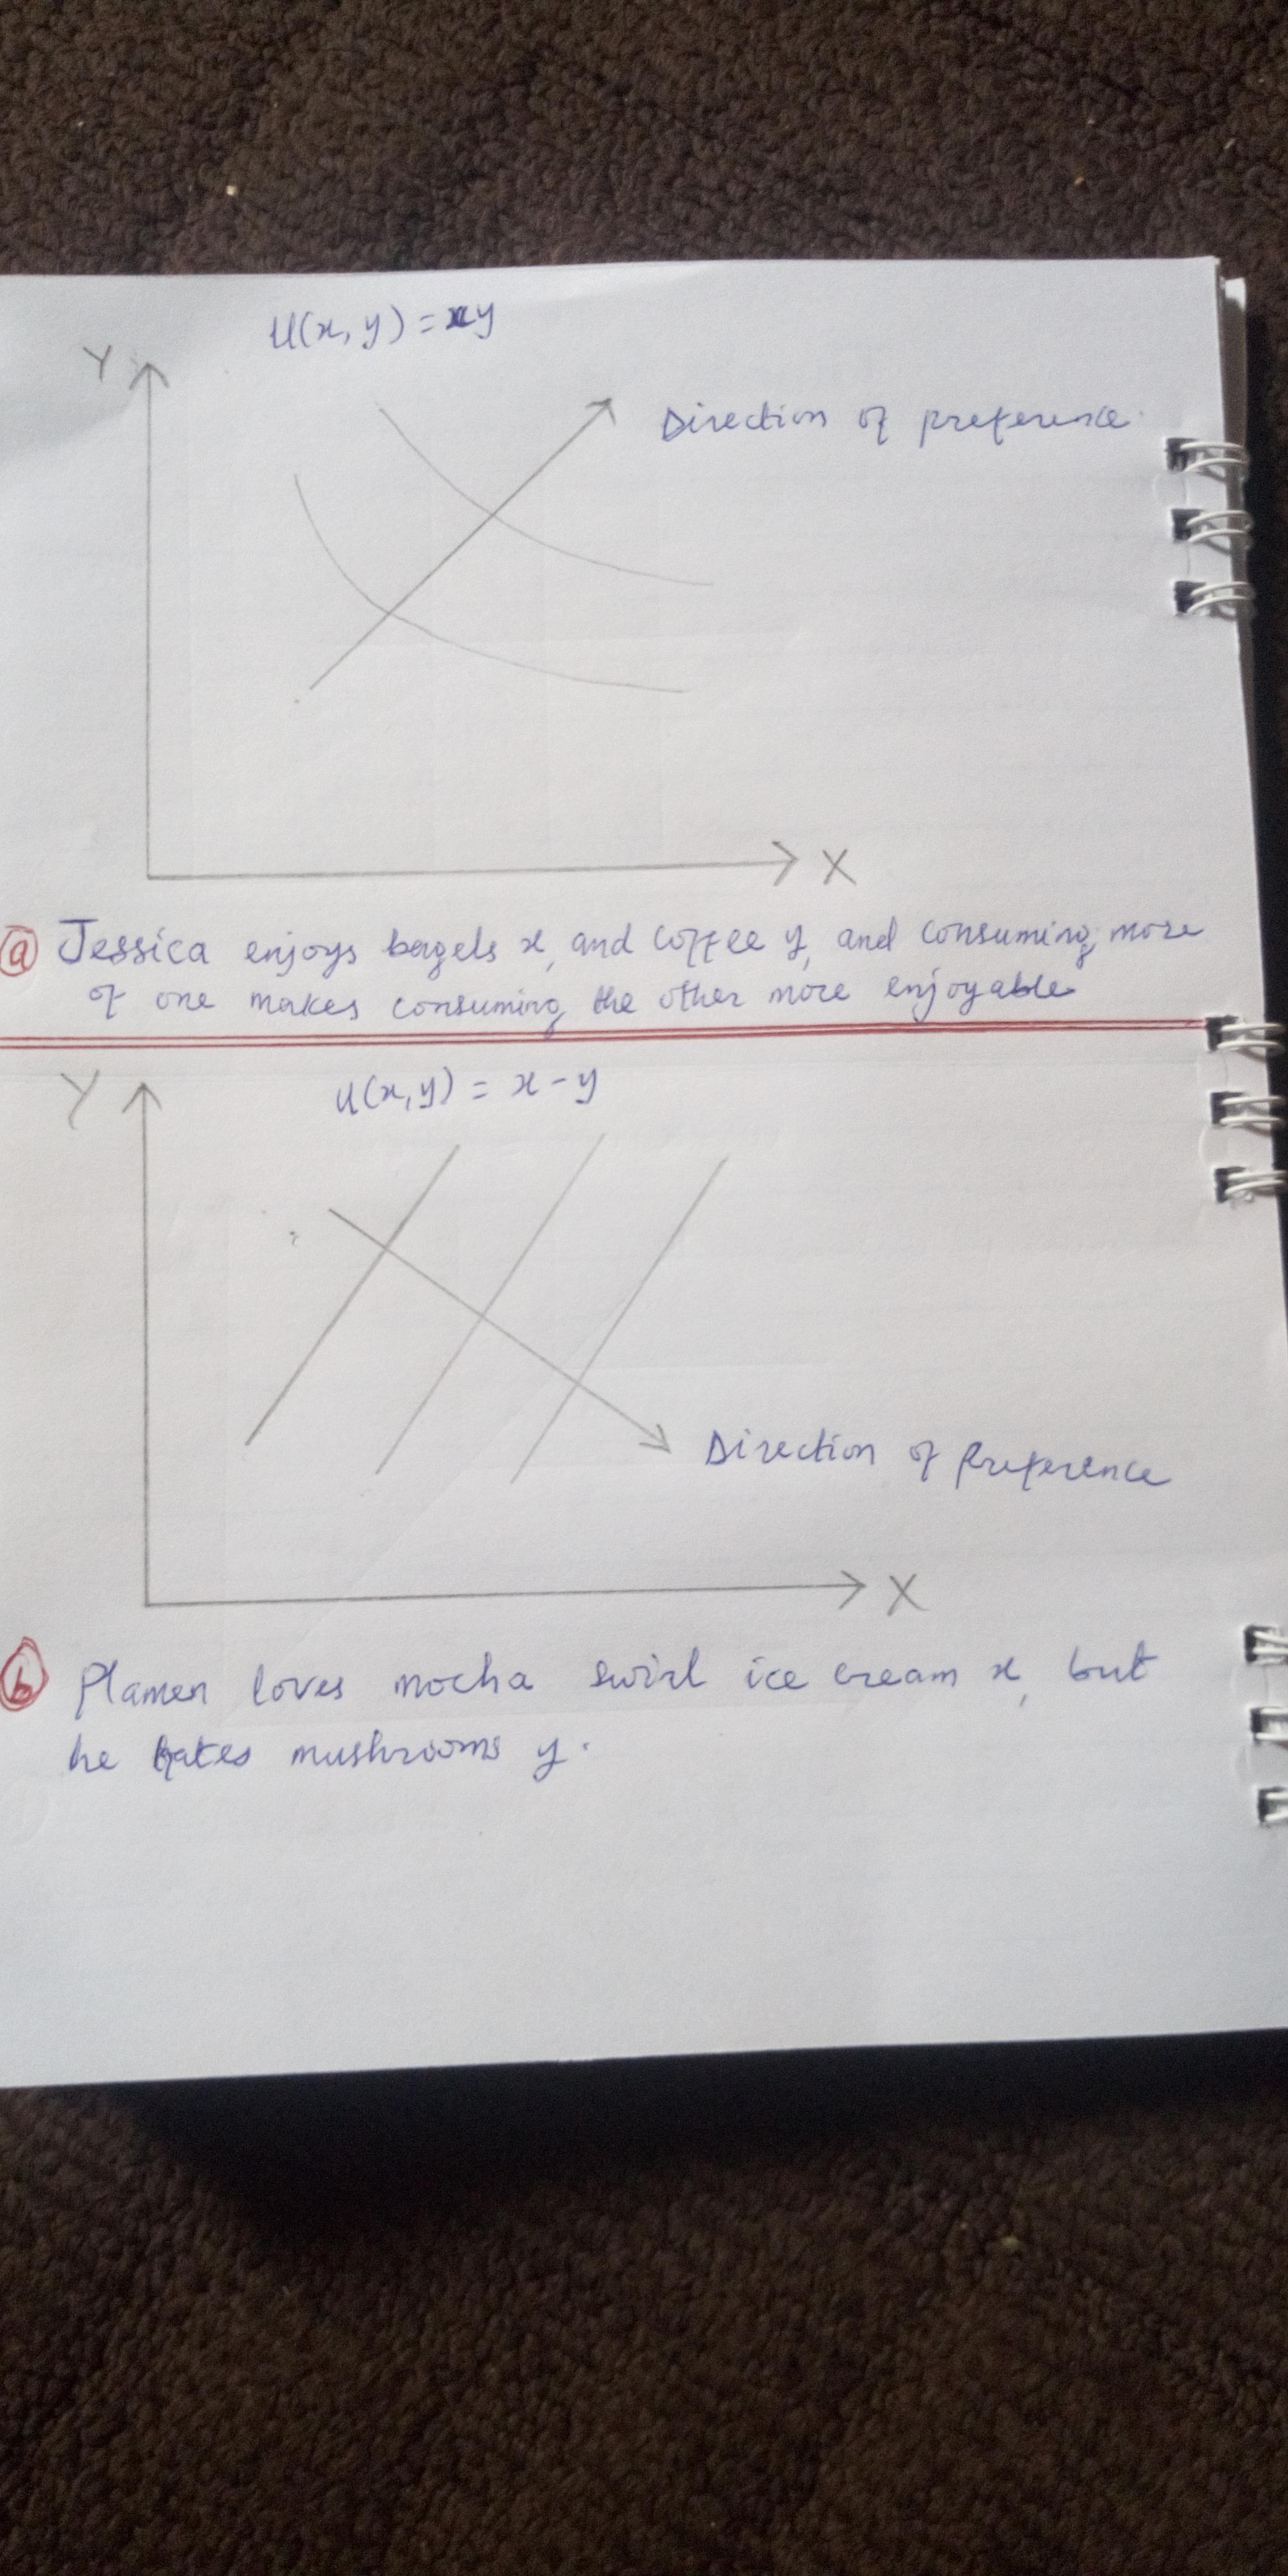 U(x, y) = xy
Y
Direction of preference.
X
a Jessica enjoys bagels x, and coffee y, and consuming more
of one makes consuming the other more enjoyable
Y
U(x, y) = x - y
Direction of Preference
X
b Plamen loves mocha swirl ice cream x, but
he hates mushrooms y.